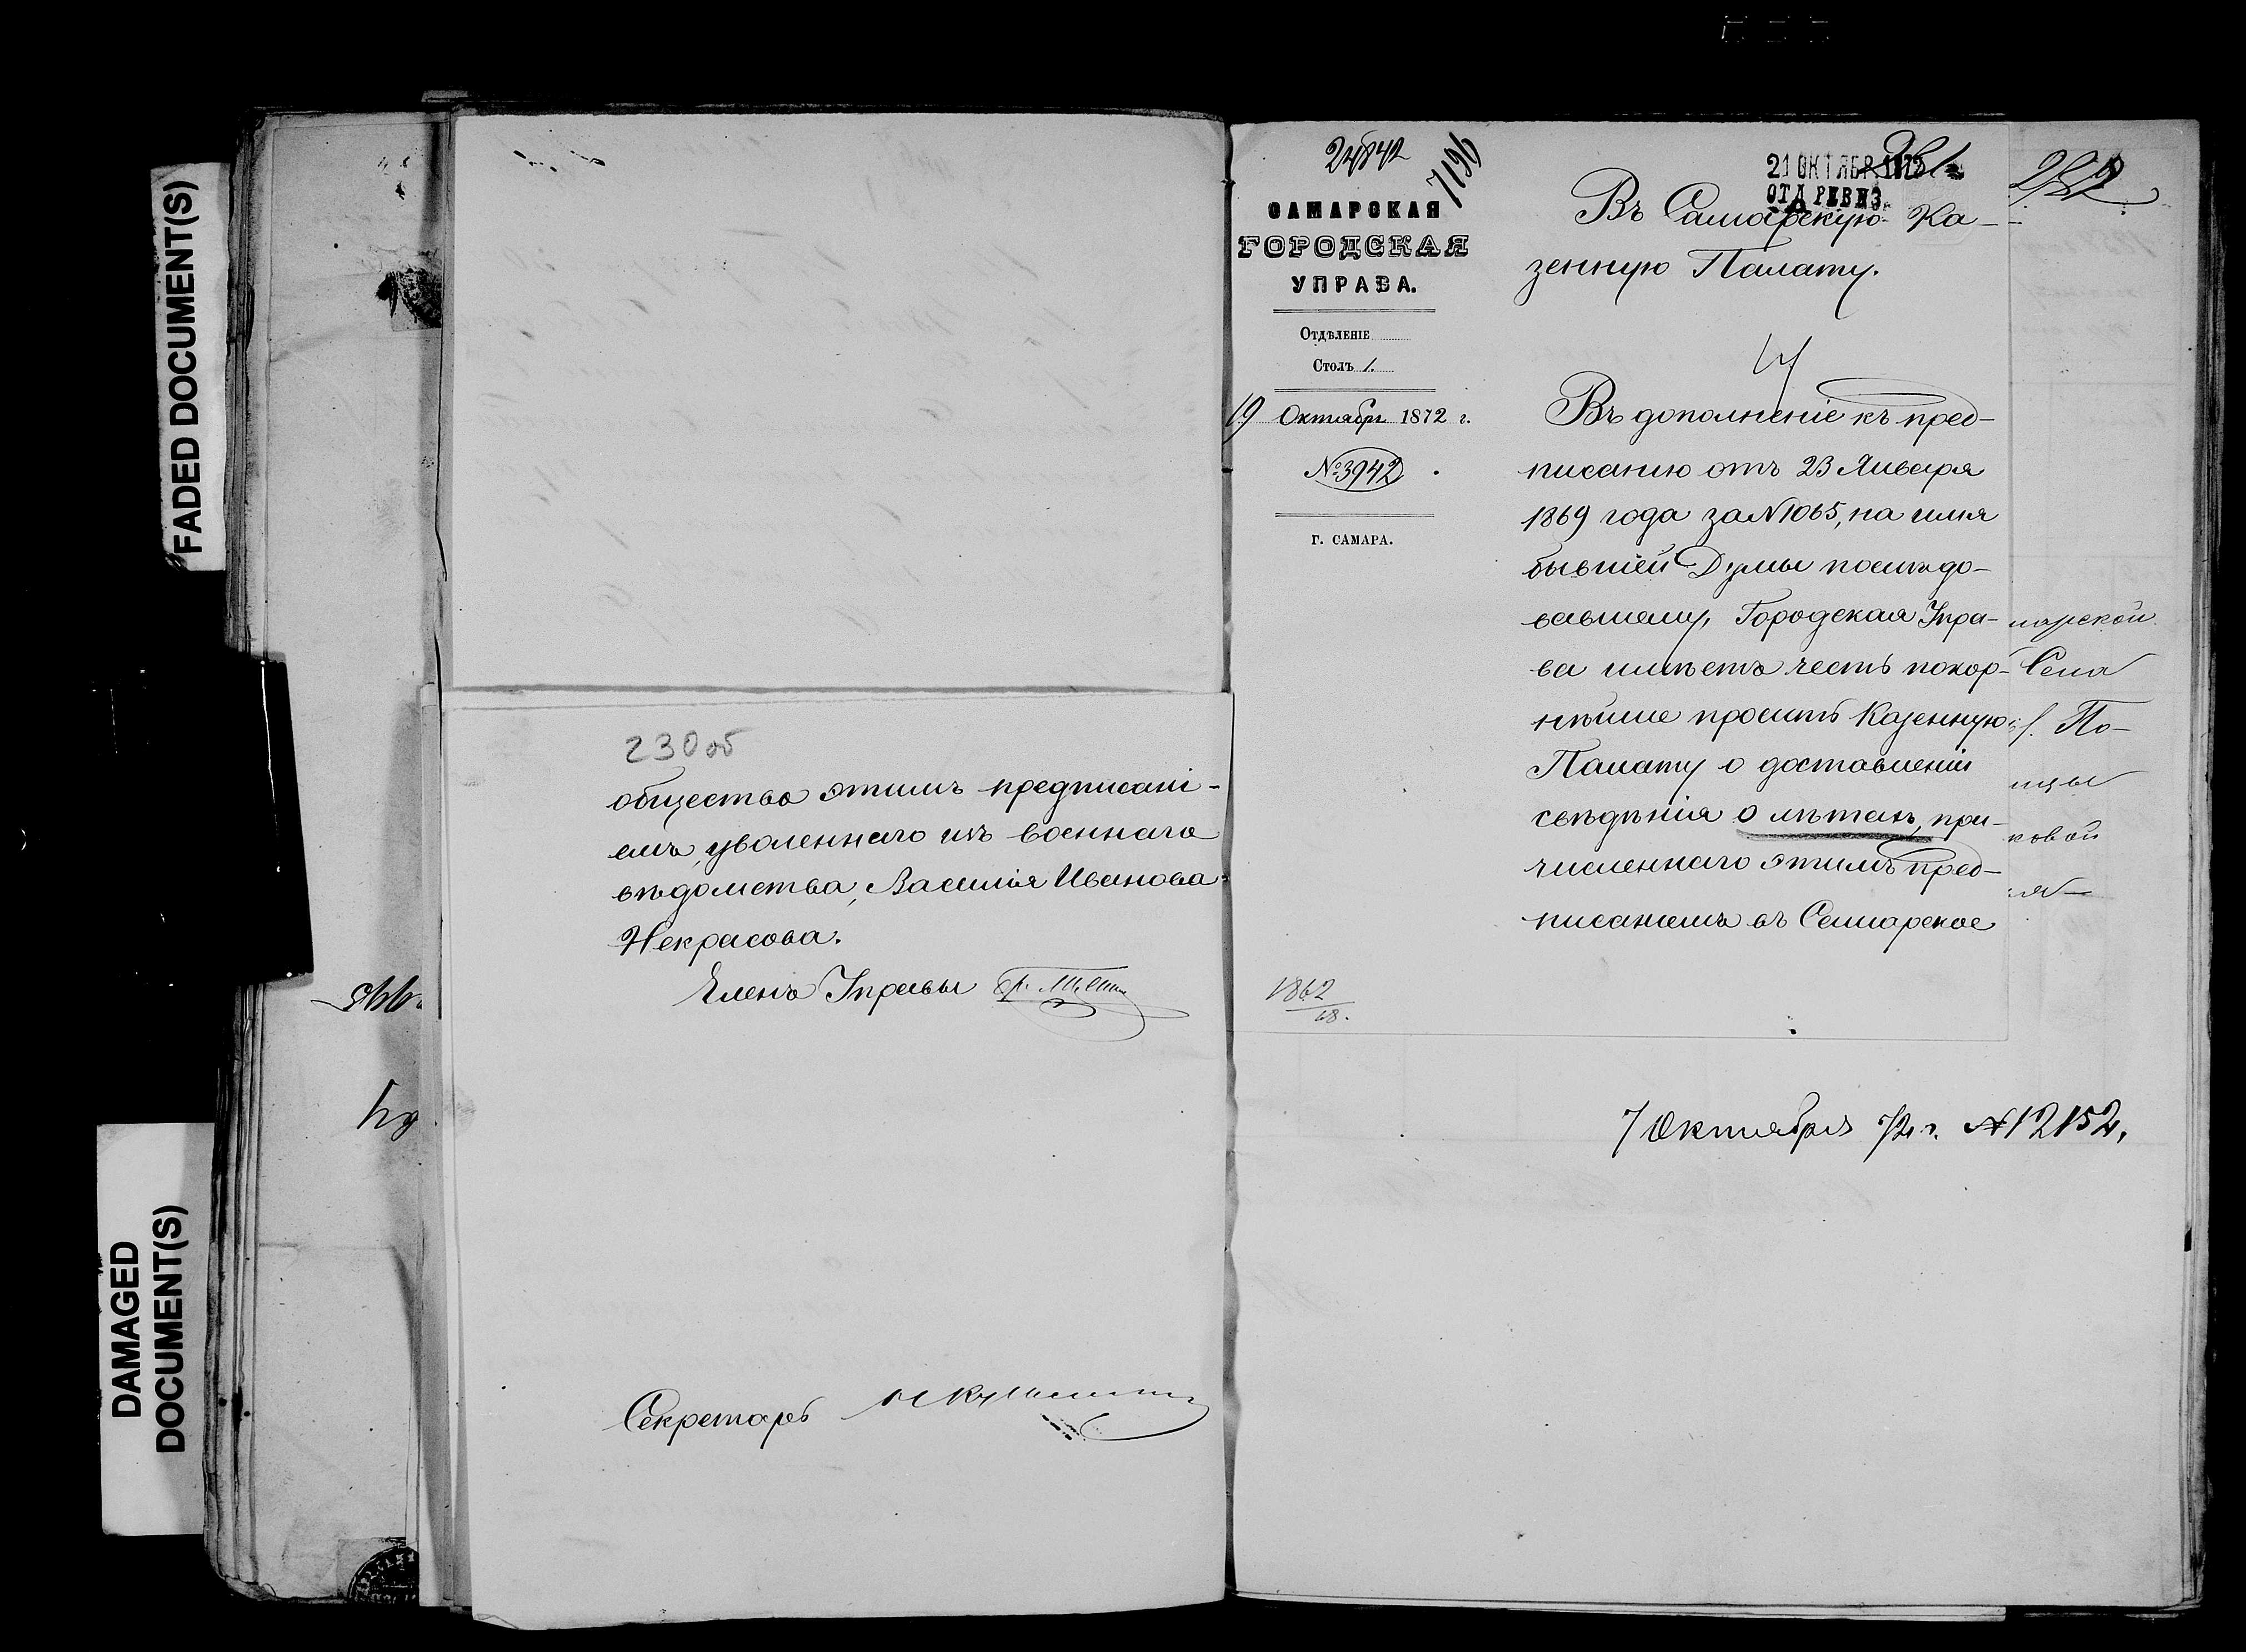 FADED DOCUMENT(S)
DAMAGED
DOCUMENT(S)
230 об
общества этимъ предписані-
емъ, уволеннаго изъ военнаго
вѣдомства, Василія Иванова
Некрасова.
Членъ Управы
Секретарь
24842
7196
САМАРСКАЯ
ГОРОДСКАЯ
УПРАВА.
Отдѣленіе
Столъ 1.
19 Октября 1872 г.
№ 3942
Г. САМАРА.
21 ОКТЯБР. 1872
ОТД РЕВИЗ.
Въ Самарскую Ка-
зенную Палату.
Въ дополненіе къ пред-
писанію отъ 23 Января
1869 года за № 1065, на имя
бывшей Думы послѣдо-
вавшему, Городская Упра-
ва имѣетъ честь покор-
нѣйше просить Казенную
Палату о доставленіи
свѣдѣнія о лѣтахъ, при-
численнаго этимъ пред-
писаніемъ въ Самарское
марской
Сама
По-
ицы
ковой
1862
68.
7 Октября 72 г. № 12152.